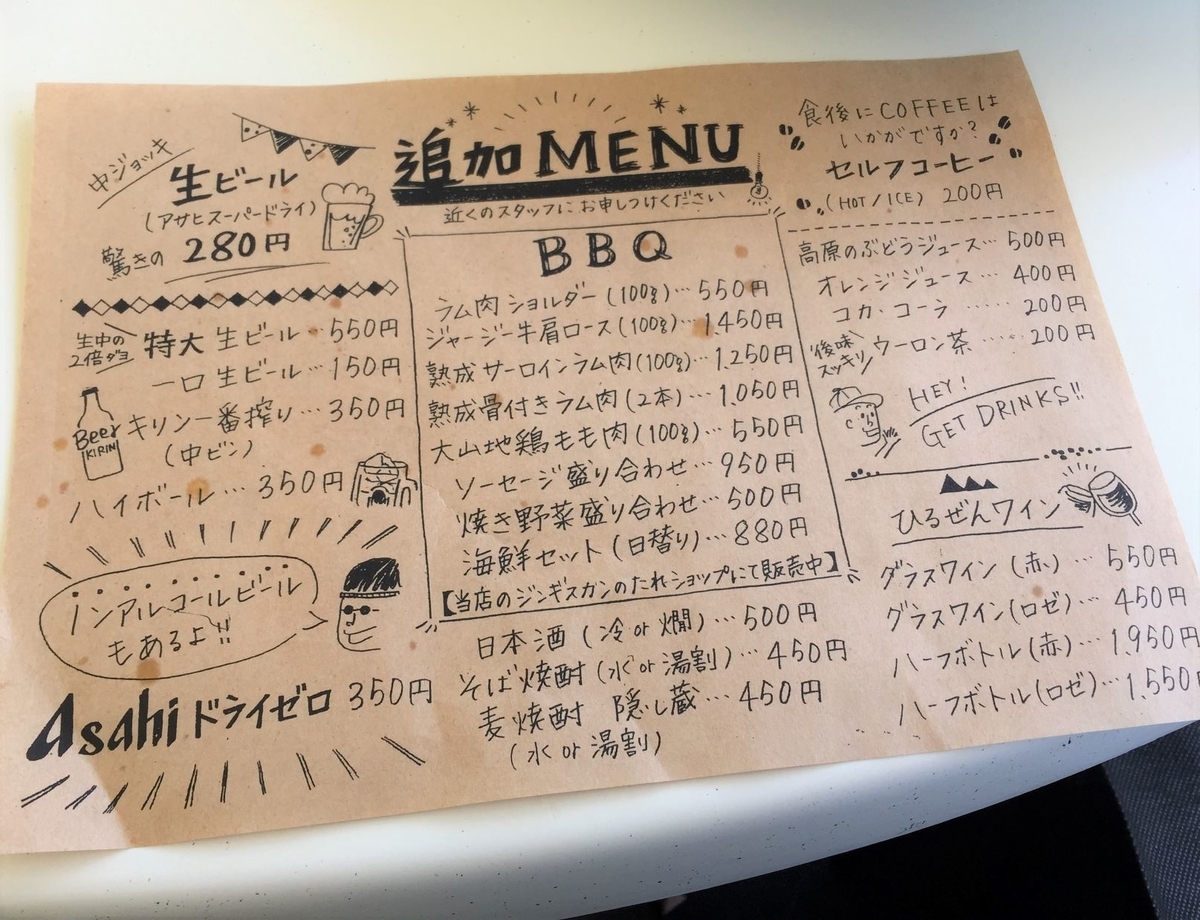 追加MENU
近くのスタッフにお申しつけください
中ジョッキ
生ビール
(アサヒスーパードライ)
驚きの 280円
生中の
2倍ダヨ
特大 生ビール…550円
一口 生ビール…150円
Beer
KIRIN
キリン一番搾り…350円
(中ビン)
ハイボール…350円
ノンアルコールビール
もあるよ!!
Asahi ドライゼロ 350円
BBQ
ラム肉 ショルダー(100g)…550円
ジャージー牛肩ロース(100g)…1,450円
熟成サーロインラム肉(100g)…1,250円
熟成骨付きラム肉(2本)…1,050円
大山地鶏もも肉(100g)…550円
ソーセージ盛り合わせ…950円
焼き野菜盛り合わせ…500円
海鮮セット(日替り)…880円
【当店のジンギスカンのたれショップにて販売中】
日本酒(冷 or 燗)…500円
そば焼酎(水 or 湯割)…450円
麦焼酎 隠し蔵…450円
(水 or 湯割)
食後にCOFFEEは
いかがですか?
セルフコーヒー
(HOT/ICE) 200円
高原のぶどうジュース…500円
オレンジジュース…400円
コカ・コーラ……200円
後味
スッキリ
ウーロン茶…200円
HEY!
GET DRINKS!!
ひるぜんワイン
グラスワイン(赤)…550円
グラスワイン(ロゼ)…450円
ハーフボトル(赤)…1,950円
ハーフボトル(ロゼ)…1,550円